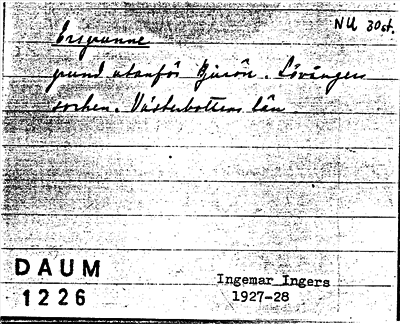 NU 30 st.
grund utanför Bjurön. Lövångers
socken. Västerbottens län
DAUM
1226
Ingemar Ingers
1927-28